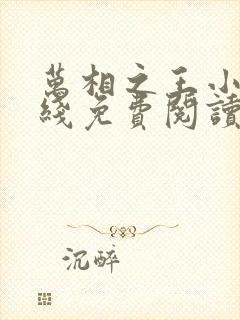 萬相之王小
綫免費閱讀
沉醉